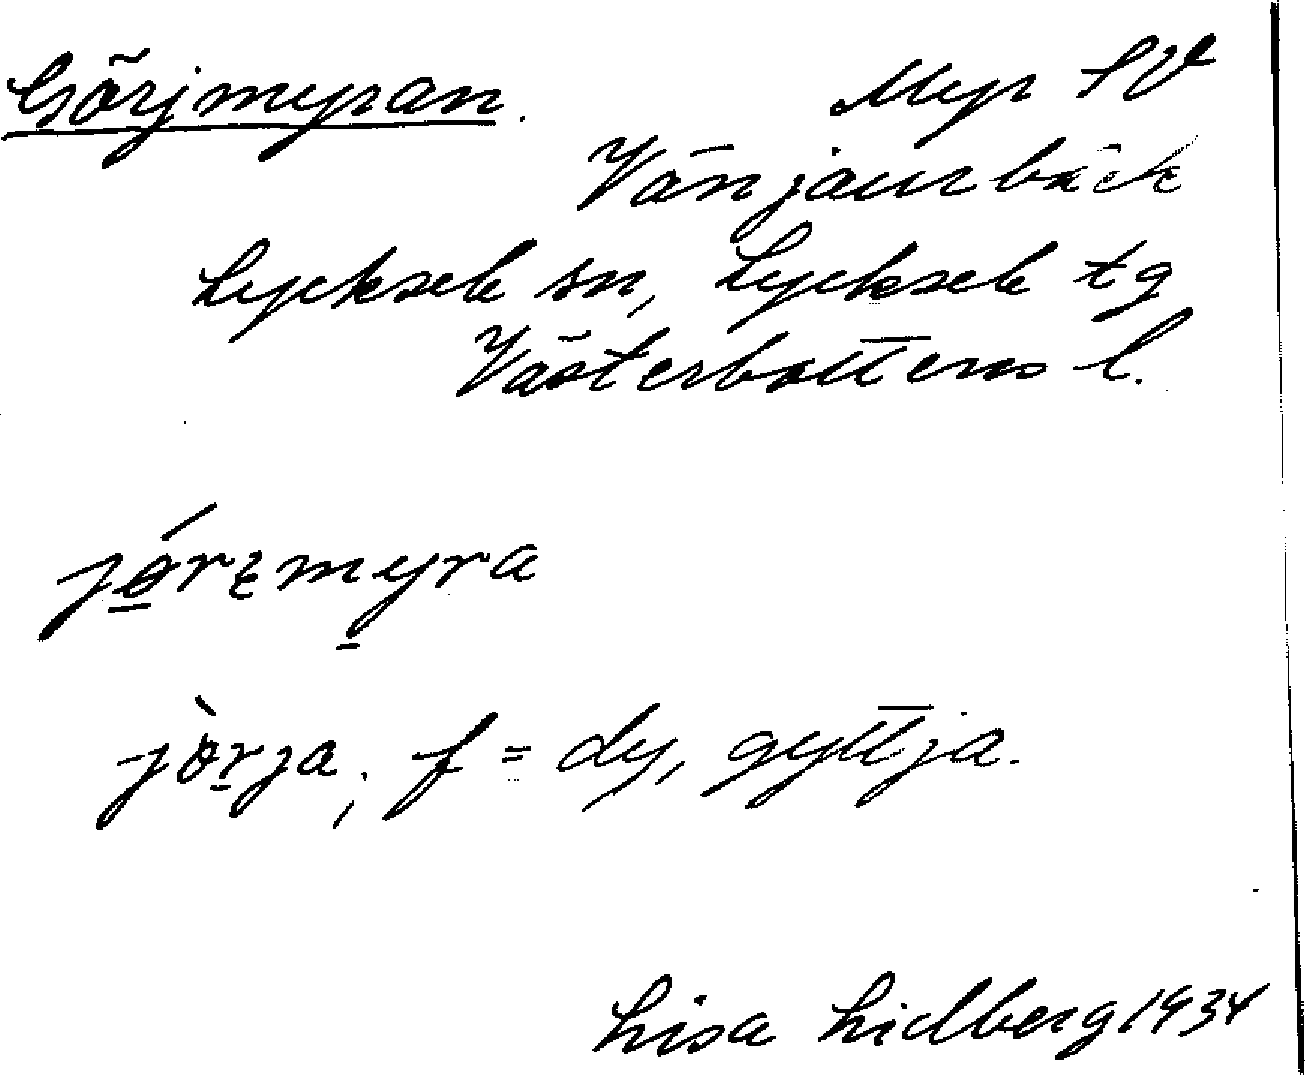 Görjmyran. Myr SV
Vänjaurbäck
Lycksele sn, Lycksele tg
Västerbottens l.
jǿ̲rʒmy̲ra
jòr̲ja, f = dy, gyttja.
Lisa Lidberg 1934